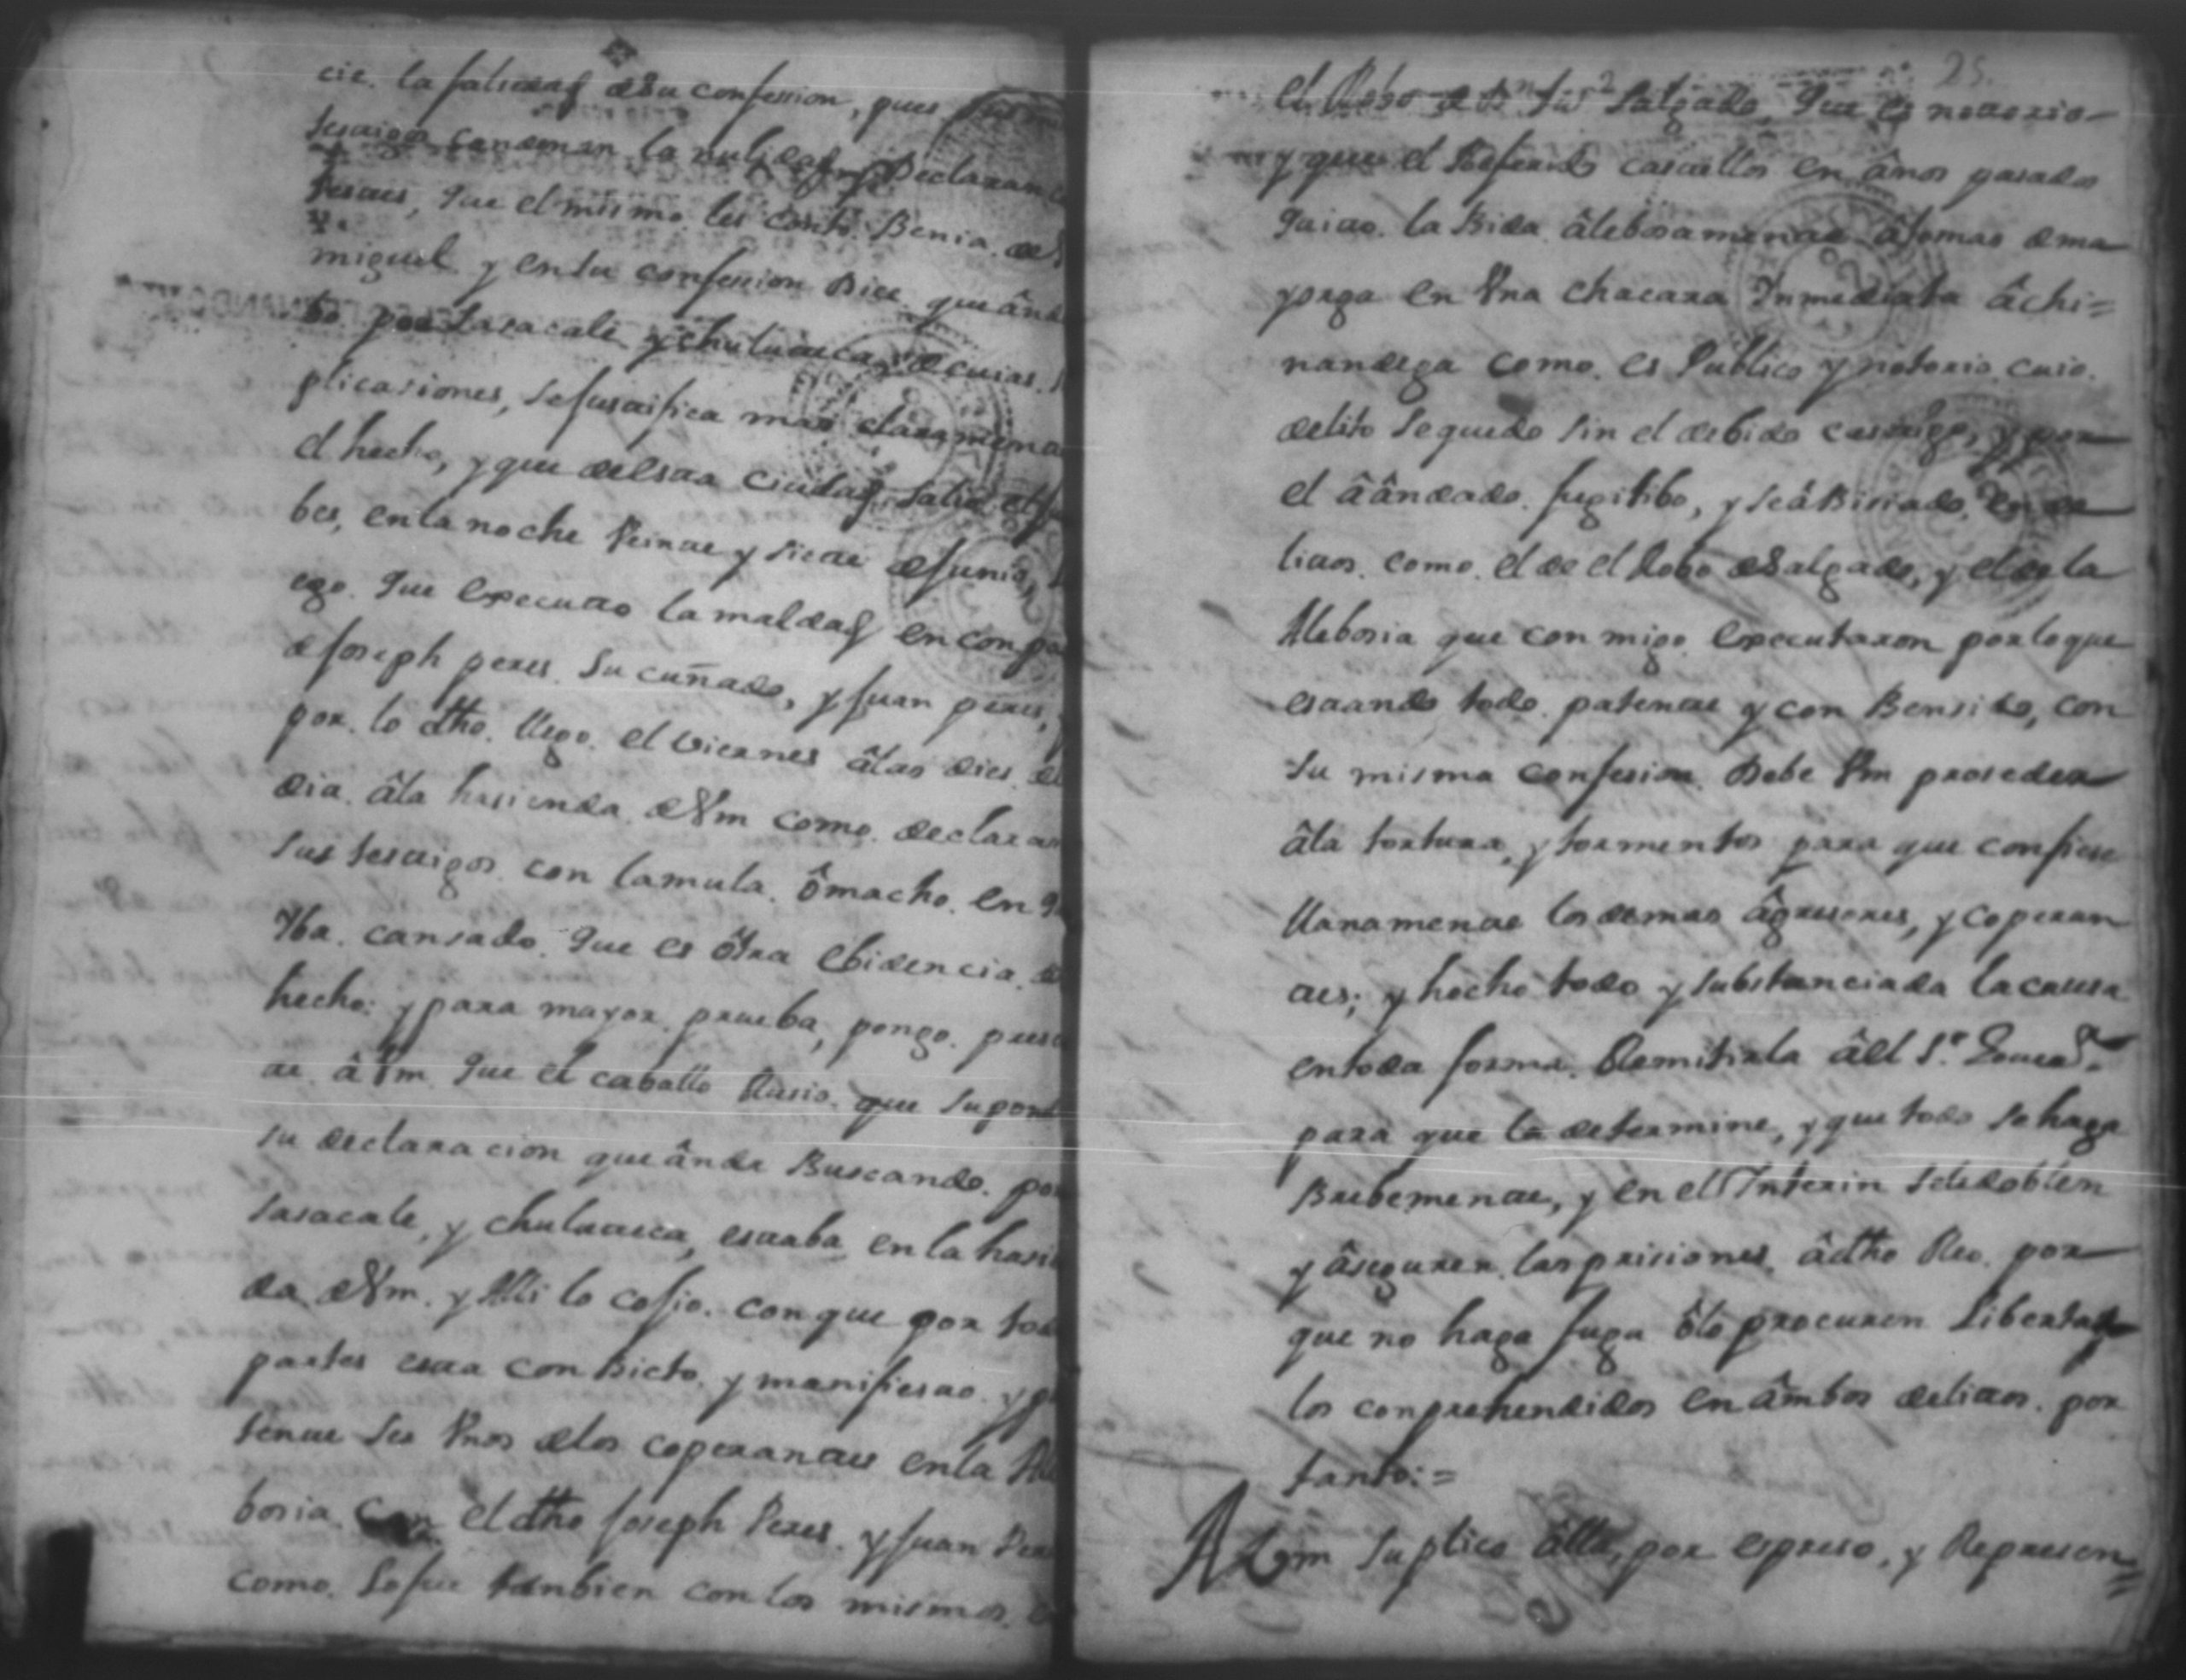 cie. la falsedad de su confession, pues
testigos condenan la nulidad y Declaran
testes, que el mismo les conto Benia de
miguel y en su confession Dice que ând
bo por Sasacali y chuluteca, de cuias
plicasiones, se justifica mas claramente
el hecho, y que de esta Ciudad salio el
bes, en la noche Veinte y siete de Junio,
ego. que executo la maldad en conpa
de Joseph peres su cuñado, y Juan peres,
por lo dho. llego el viernes âlas dies de
dia âla hasienda de Vm como declaran
sus testigos con la mula ô macho en q
Yba cansado que es ôtra ebidencia de
hecho: y para mayor prueba, pongo presen
te â Vm que el caballo Rusio que supon
su declaracion que ânda Buscando por
Sasacale, y chuluteca, estaba en la hasi
da de Vm. y Alli lo cojio. con que por tod
partes esta conBicto y manifiesto y p
tente ser Vnos de los coperantes en la Ale
bosia con el dho Joseph Peres y Juan Pere
como lo fue tanbien con los mismos
25.
el Robo de Dn Jur Salgado, que es notorio
y que el Referido castellos en ânos pasados
quito la Bida âlebosamente â tomas de ma
yorga en Vna chacara Ynmediata âchi=
nandega como es Publico y notorio cuio
delito se quedo sin el debido castigo, y por
el â ândado fugitibo, y se â Bisiado en de
litos como el de el Robo de Salgado, y el de la
Alebosia que con migo executaron por lo que
estando todo patente y con Bensido, con
su misma confesion Debe Vm proseder
âla tortura, y tormentos para que confiese
llanamente los demas âgresores, y coperan
tes; y hecho todo y substanciada la causa
en toda forma Remitirla âel Sr. Governr.
para que la determine, y que todo se haga
Brebemente, y en el Ynterin se le doblen
y âseguren las prisiones âdho Reo por
que no haga fuga ô lo procuren Libertar
los conprehendidos en âmbos delitos. por
tanto:=
A Vm suplico âlla, por espreso, y Represen=